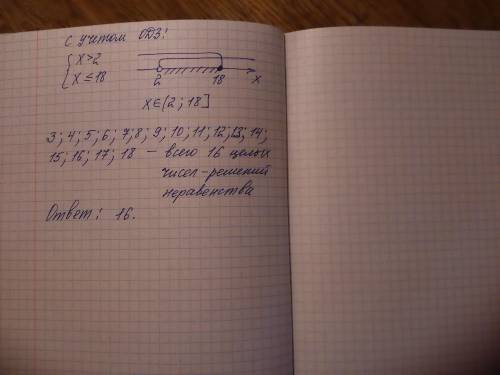 с учетом ОДЗ:
{ x>2
{ x≤18
2 18 x
x∈(2; 18]
3; 4; 5; 6; 7; 8; 9; 10; 11; 12; 13; 14;
15; 16; 17; 18 – всего 16 целых
чисел-решений
неравенства
Ответ: 16.